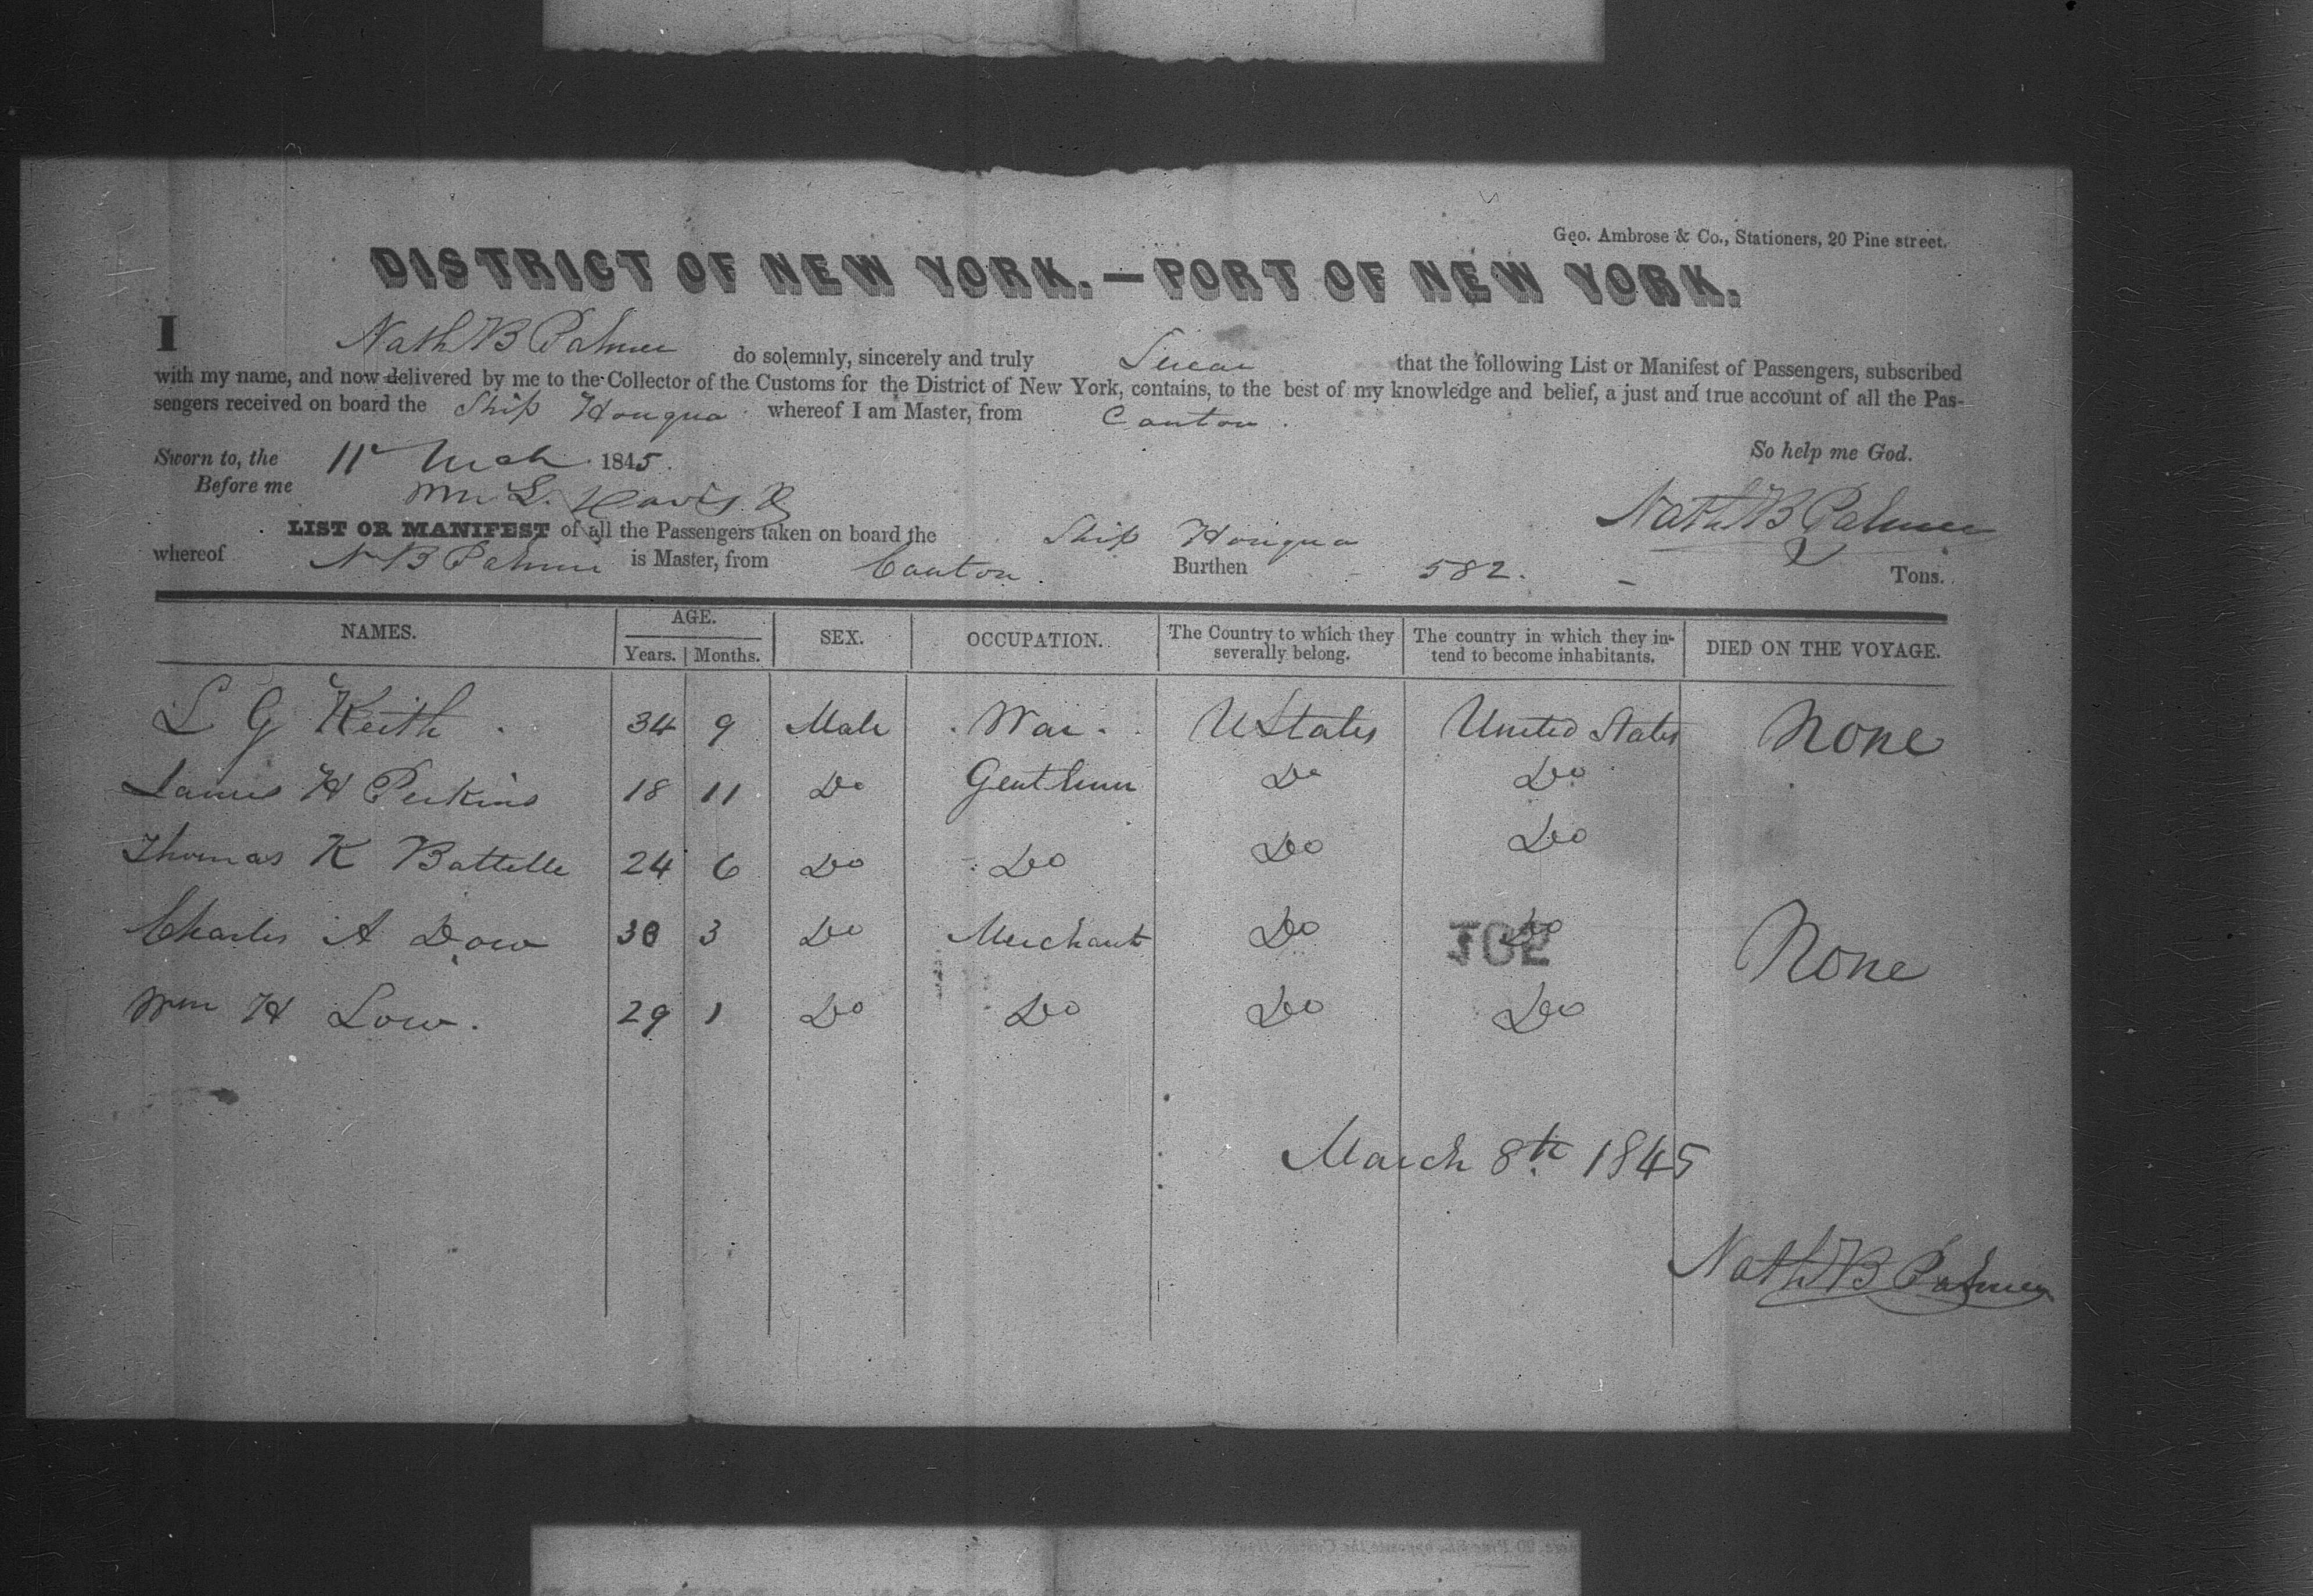 Geo. Ambrose & Co., Stationers, 20 Pine street.
DISTRICT OF NEW YORK.—PORT OF NEW YORK.
I Nath B Palmer do solemnly, sincerely and truly Swear that the following List or Manifest of Passengers, subscribed
with my name, and now delivered by me to the Collector of the Customs for the District of New York, contains, to the best of my knowledge and belief, a just and true account of all the Pas-
sengers received on board the Ship Houqua whereof I am Master, from Canton.
So help me God.
Sworn to, the 11 Mch 1845.
Before me Wm S. Davis
Nath B Palmer
LIST OR MANIFEST of all the Passengers taken on board the Ship Houqua
whereof N B Palmer is Master, from Canton. Burthen 582. Tons.
NAMES. AGE. SEX. OCCUPATION. The Country to which they severally belong. The country in which they in-tend to become inhabitants. DIED ON THE VOYAGE.
Years. Months.
L G Keith . 34 9 Male . War . UStates United States None
James H Perkins 18 11 Do Gentlemn Do Do
Thomas K Battelle 24 6 Do Do Do Do
Charles A Dow 30 3 Do Merchant Do Do None
Wm H Low. 29 1 Do Do Do Do
March 8th 1845
Nath B Palmer